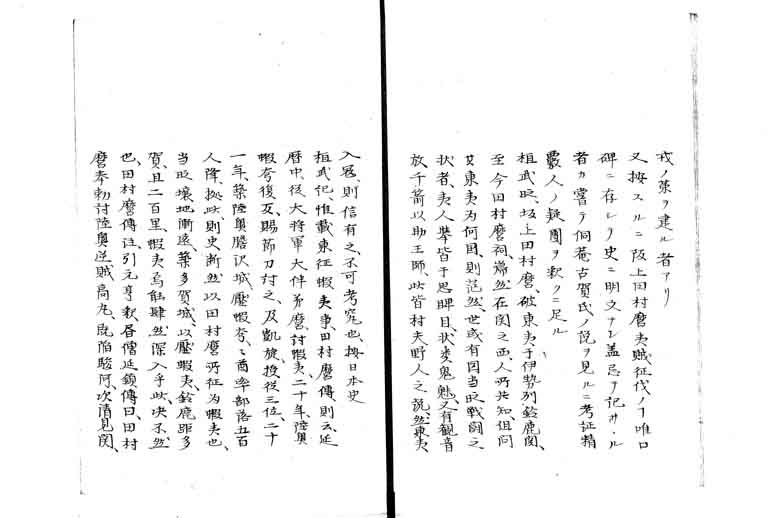 戎ノ策ヲ建ル者アリ
又按スルニ阪上田村麿夷賊征伐ノヿ唯口
碑ニ存シテ史ニ明文ナシ蓋忌テ記サヽル
者カ嘗テ侗菴古賀氏ノ説ヲ見ルニ考証精
覈人ノ疑團ヲ釈クニ足ル
桓武时、坂上田村麿、破東夷于伊勢列鈴鹿関、
至今田村麿祠、巋然在関之西、人所共知、但问
其東夷为何国、則茫然、世或有図当时戦闘之
状者、夷人挙皆牛思睥目、状类鬼魅、又有観音
放千箭以助王師、此皆村夫野人之説、然東夷
入冦、則信有之、不可考究也、按日本史
桓武记、惟載東征蝦夷事、田村麿傳、則云、延
暦中、従大将軍大伴弟麿、討蝦夷、二十年、陸奥
蝦夷復反、賜節刀討之、及凱旋、授従三位、二十
一年、築陸奥膽沢城、壓蝦夷、〻酋率部落五百
人降、拠此則史断然以田村麿所征为蝦夷也、
当时壌地漸遠、築多賀城、以壓蝦夷、鈴鹿距多
賀、且二百里、蝦夷烏能肆然深入乎、此决不然
也、田村麿傳注引元亨釈書僧延鎮傳曰、田村
麿奉勅討陸奥逆賊高丸、既陷駿河、次清見関、